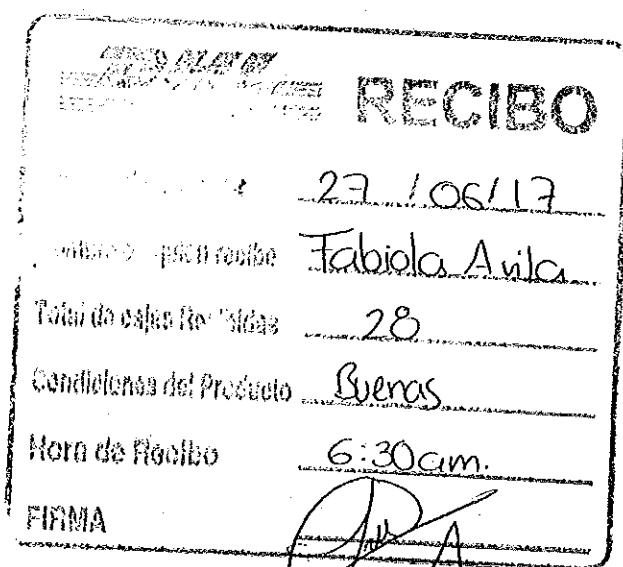 RECIBO
27 / 06 / 17
quien recibe Fabiola Avila
Total de cajas Recibidas 28
Condiciones del Producto Buenas
Hora de Recibo 6:30 am.
FIRMA